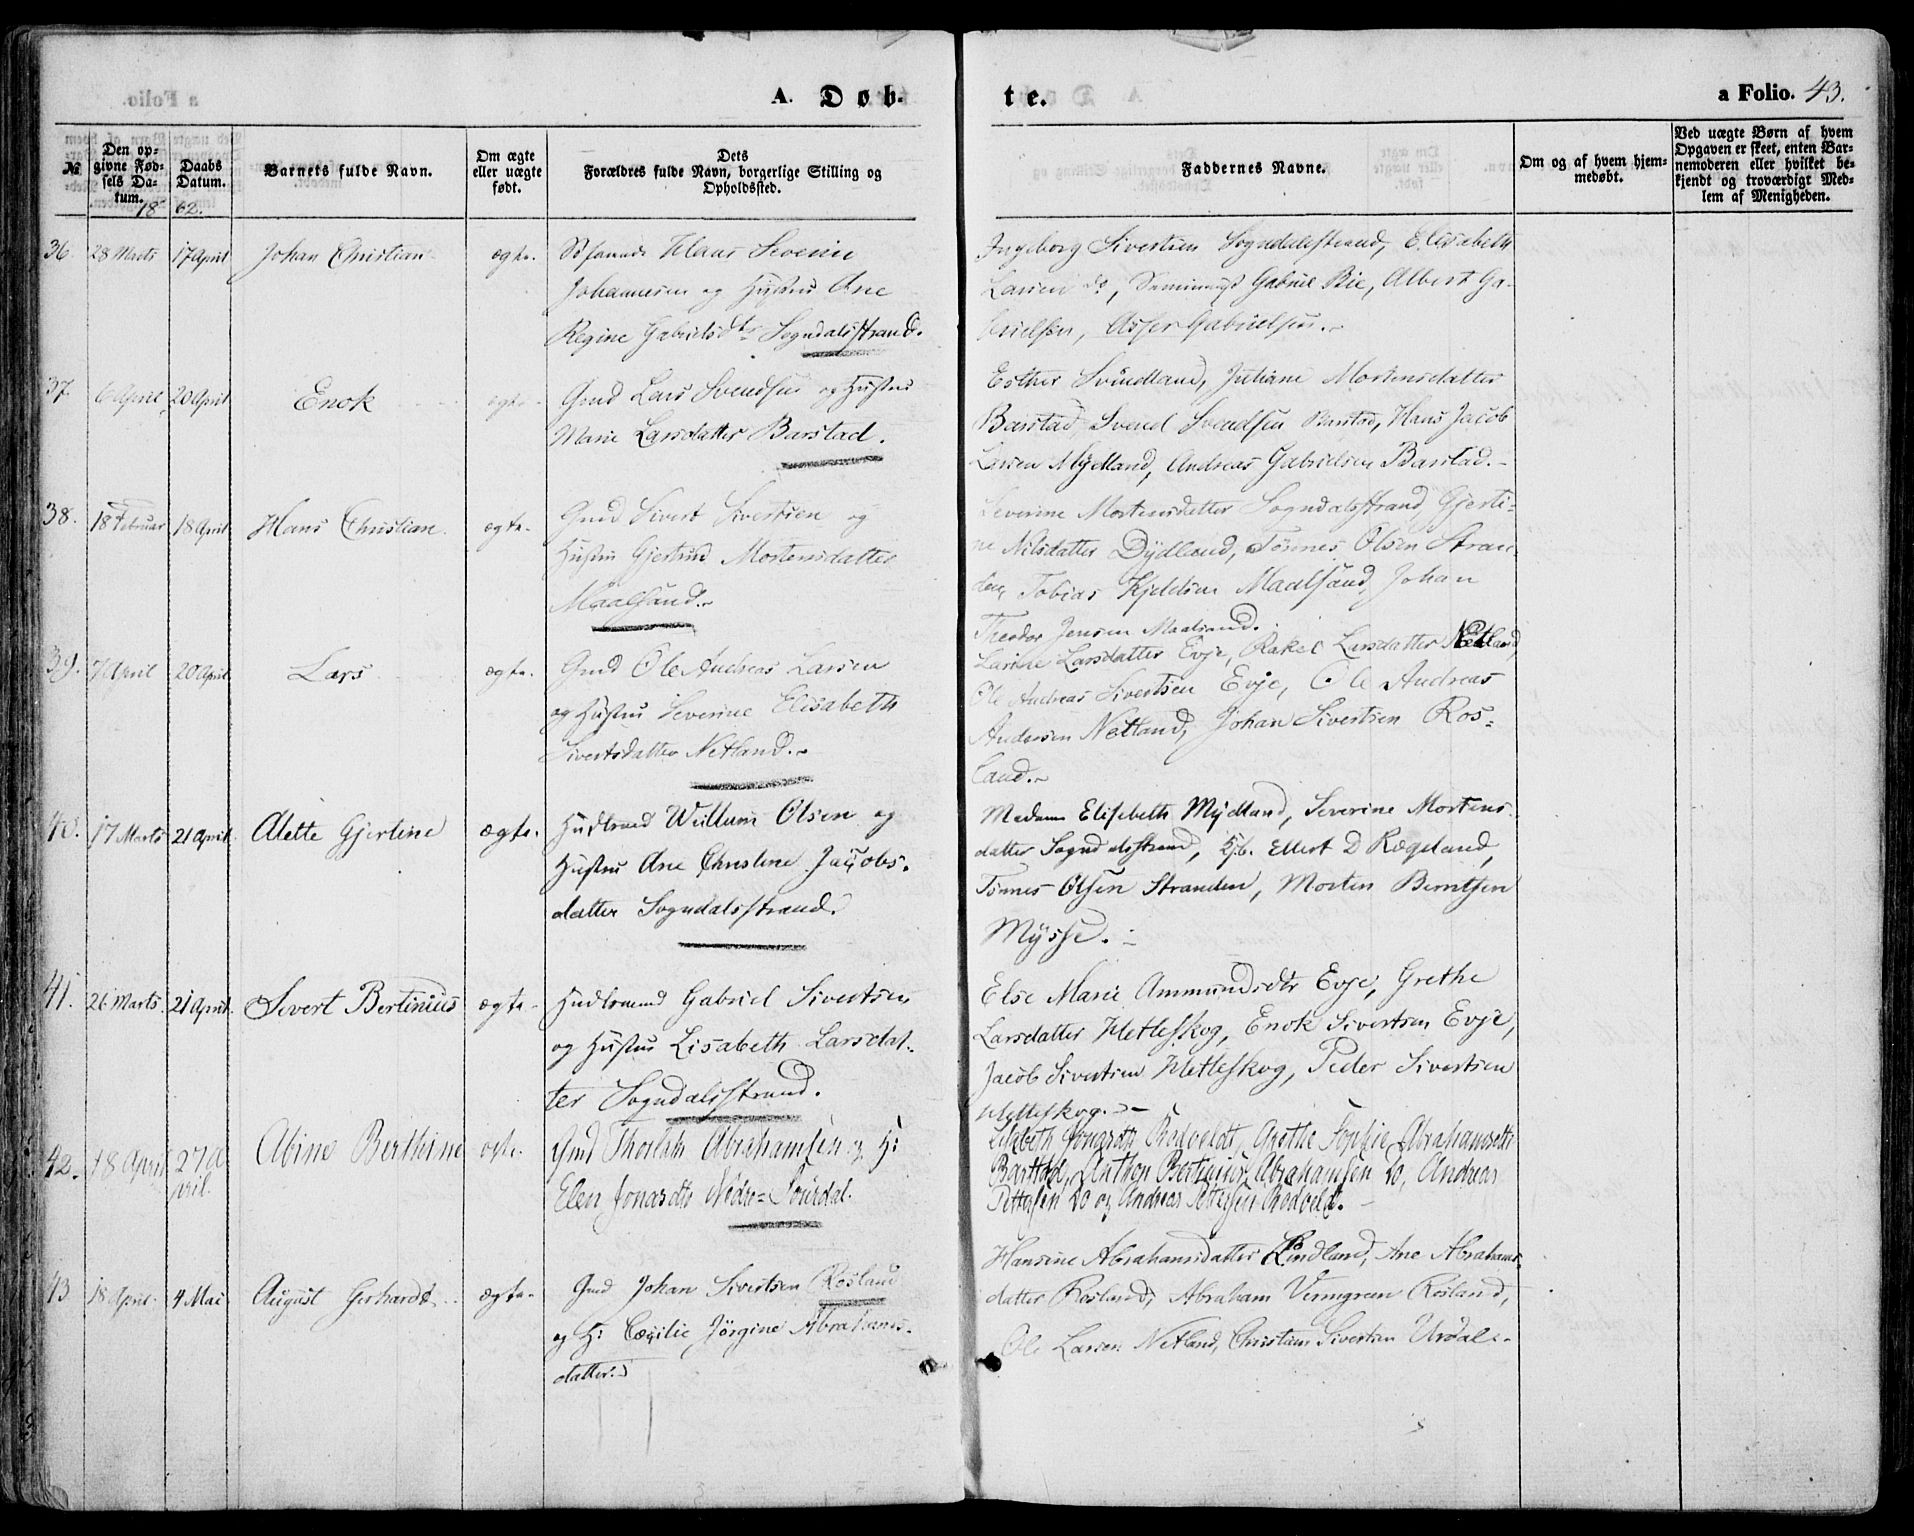 A. Døb-
te.
a Folio. 43.
№
Den op-
givne Fød-
sels Da-
tum.
Daabs
Datum.
1862.
Barnets fulde Navn.
Om ægte
eller uægte
født.
Dets
Forældres fulde Navn, borgerlige Stilling og
Opholdssted.
Faddernes Navne.
Om og af hvem hjem-
medøbt.
Ved uægte Børn af hvem
Opgaven er skeet, enten Bar-
nemoderen eller hvilket be-
kjendt og troværdigt Med-
lem af Menigheden.
36. 28 Marts 17 April Johan Christian ægte.
Klaus Severin
Johannesen og Hustru Ane
Regine Gabrielsdtr Sogndalsstrand.
Ingeborg Sivertsen Sogndalsstrand, Elisabeth
Larsen do, Seminarist Gabriel Bie, Albert Ga-
brielsen, Asser Gabrielsen.
37. 6 April 20 April Enok ægte
Gmd Lars Svendsen og Hustru
Marie Larsdatter Barstad.
Esther Svindland, Juliane Mortensdatter
Barstad, Svend Svendsen Barstad, Hans Jacob
Larsen Mydland, Andreas Gabrielsen Barstad.
38. 18 Februar 18 April Hans Christian ægte.
Gmd Sivert Sivertsen og
Hustru Gjertrud Mortensdatter
Maalsand.
Severine Mortensdatter Sogndalsstrand, Gjerti-
ne Nilsdatter Dydland, Tønnes Olsen Stran-
den, Tobias Kjeldsen Maalsand, Johan
Theodor Jensen Maalsand.
39. 7 April 20 April Lars ægte.
Gmd Ole Andreas Larsen
og Hustru Severine Elisabeth
Sivertsdatter Netland.
Larine Larsdatter Evje, Rakel Larsdatter Netland,
Ole Andreas Sivertsen Evje, Ole Andreas
Andersen Netland, Johan Sivertsen Ros-
land.
40. 17 Marts 21 April Alette Gjertine ægte.
Huusmand Willum Olsen og
Hustru Ane Christine Jacobs-
datter Sogndalsstrand.
Madam Elisebeth Mydland, Severine Mortens-
datter Sogndalsstrand, Ellert D Rægeland,
Tønnes Olsen Stranden, Morten Berntsen
Mysse.
41. 26 Marts 21 April Sivert Bertinius ægte
Huusmand Gabriel Sivertsen
og Hustru Lisabeth Larsdat-
ter Sogndalsstrand.
Else Marie Ammundsdtr Evje, Grethe
Larsdatter Hetleskog, Enok Sivertsen Evje,
Jacob Sivertsen Hetleskog, Peder Sivertsen
Hetleskog.
42. 18 April 27 A
pril. Abine Berthine ægte.
Gmd Thorleth Abrahamsen og H:
Elen Jonasdtr Nedre=Sourdal.
Lisabeth Jonasdtr Rodvelt, Grethe Sophie Abrahamsdtr
Barstad, Anthon Bertinius Abrahamsen do, Andreas
Pettersen do og Andreas Pettersen Rodvelt.
43 18 April 4 Mai August Gerhardt ægte.
Gmd Johan Sivertsen Rosland
og H: Cecilie Jørgine Abrahams-
datter.
Hansine Abrahamsdatter Lindland, Ane Abrahams-
datter Rosland, Abraham Vermgren Rosland,
Ole Larsen Netland, Christian Sivertsen Urdal.